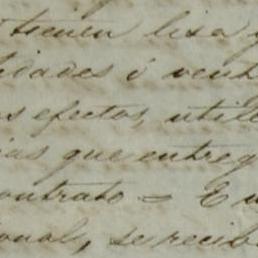 tienen lisa y
lidades i vent
os efectos, utile
ias que entreg
ontrato = E
onal, se recib